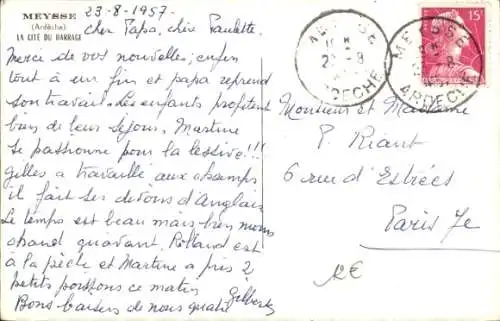 MEYSSE
(Ardèche)
LA CITÉ DU BARRAGE
23-8-1957-
Cher Papa, chère Paulette.
Merci de vos nouvelles; enfin
tout à une fin et papa reprend
son travail. Les enfants profitent
bien de leur séjour. Martine
se passionne pour la lessive!!!
Gilles a travaillé aux champs
il fait ses devoirs d'Anglais
Le temps est beau mais bien moins
chaud quavant. Rolland est
à la pêche et Martine a pris 2
petits poissons ce matin
Bons baisers de nous quatre
Gilberte
MEYSSE
ARDECHE
MEYSSE
ARDECHE
15F
Monsieur et Madame
P. Riant
6 rue d'Estrées
Paris 7e
2€